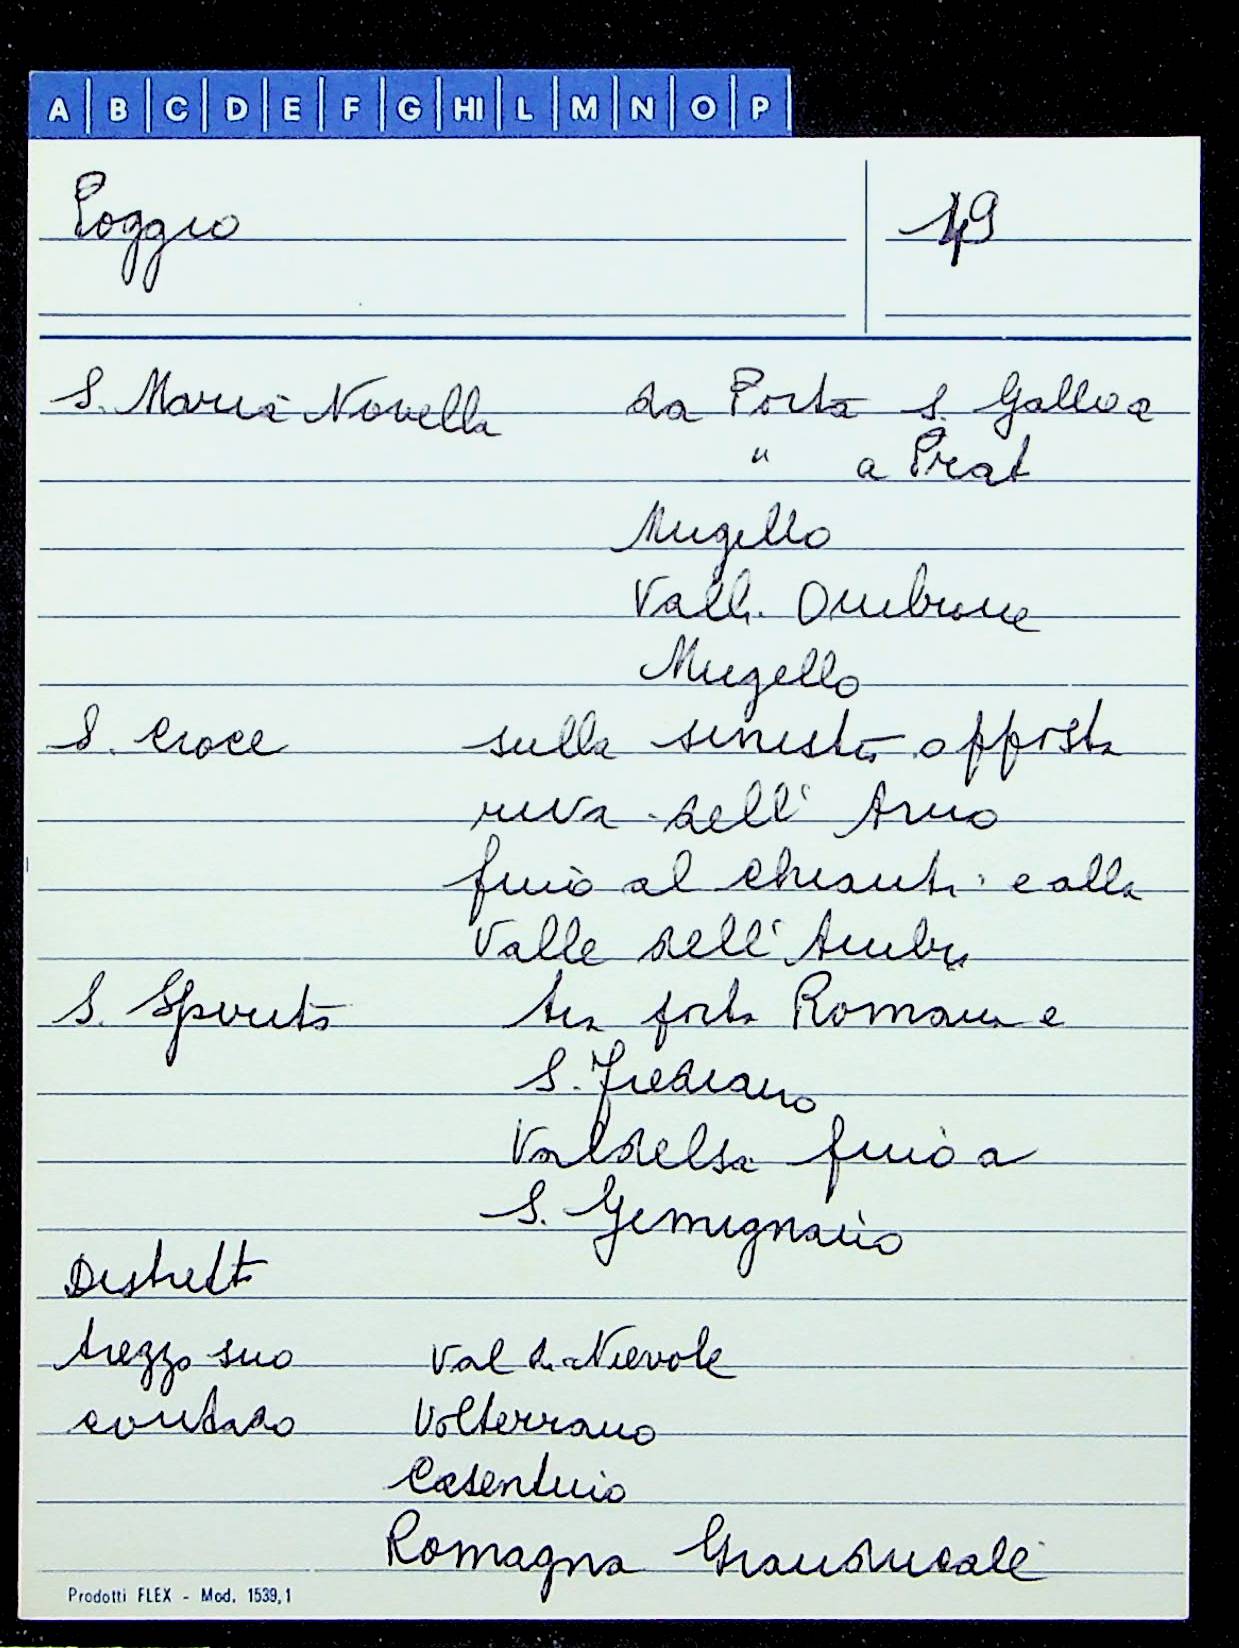 A B C D E F G HI L M N O P
Poggio 49
S. Maria Novella da Porta S. Gallo a
" a Prat
Mugello
Vall. Ombrone
Mugello
S. Croce sulla sinistra opposta
riva dell' Arno
fino al Chianti e alla
Valle dell' Ambra
S. Spirito tra porta Romana e
S. Frediano
Valdelsa fino a
S. Gemignano
Distretto
Arezzo suo Val di Nievole
contado Volterrano
Casentino
Romagna Granducale
Prodotti FLEX - Mod. 1539,1